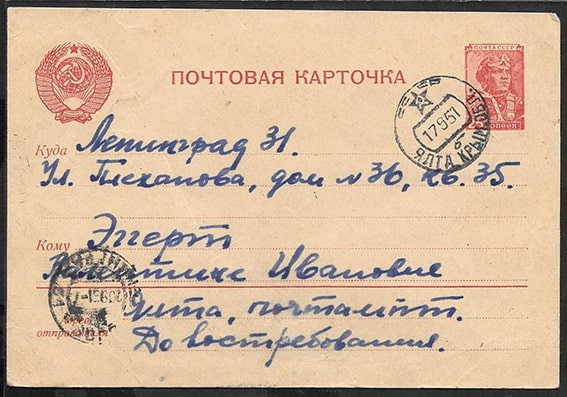 ПОЧТОВАЯ КАРТОЧКА
ПОЧТА СССР
17 9 51
ЯЛТА КРЫМ. ОБЛ.
Куда Ленинград 31.
Ул. Плеханова, дом № 36, кв. 35.
Кому Эггерт
Валентине Ивановне
Ялта, почтамт.
отправителя До востребования.